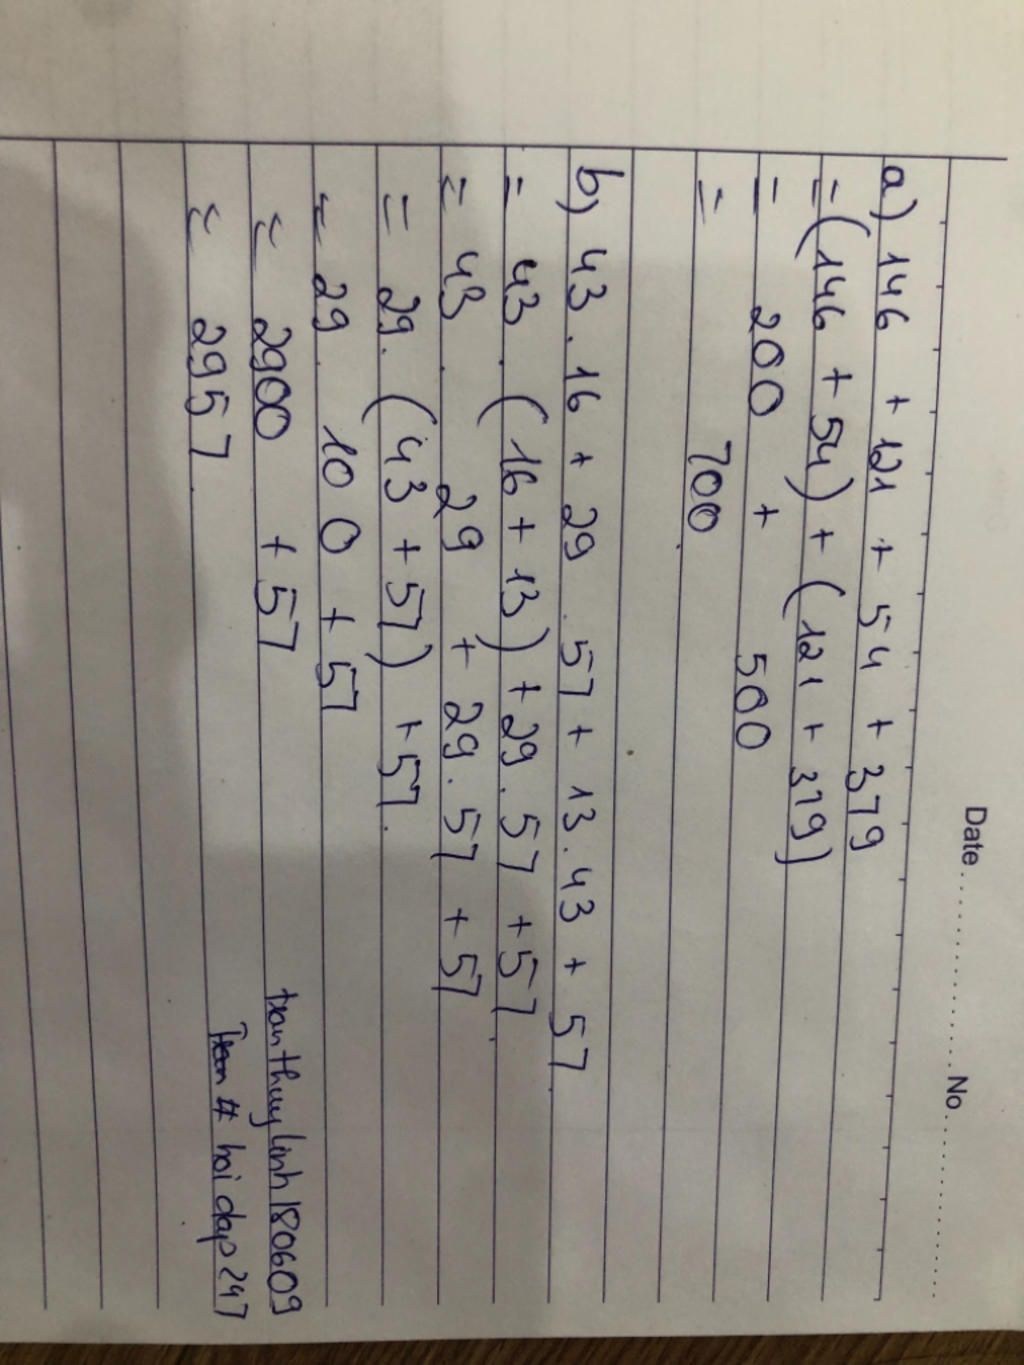 Date.................. No...................
a) 146 + 121 + 54 + 379
= (146 + 54) + (121 + 379)
= 200 + 500
= 700
b) 43 . 16 + 29 . 57 + 13 . 43 + 57
= 43 . (16 + 13) + 29 . 57 + 57
= 43 . 29 + 29 . 57 + 57
= 29 . (43 + 57) + 57.
= 29 . 100 + 57
= 2900 + 57
= 2957
tranthuylinh180609
# hoidap247